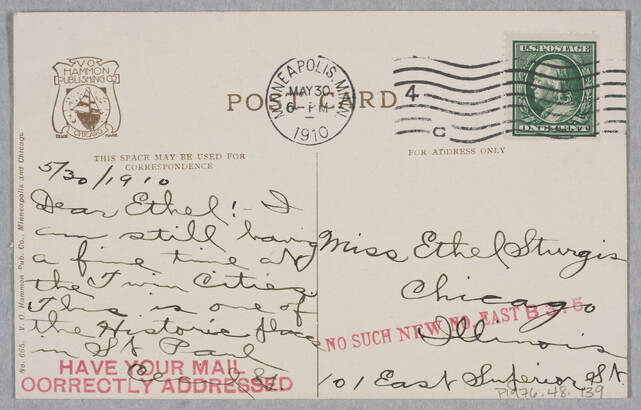 V.O.
HAMMON
PUBLISHING CO.
CHICAGO
TRADE MARK
MINNEAPOLIS, MINN.
MAY 30
6-PM
1910
4
C
U.S. POSTAGE
ONE CENT
POST CARD
THIS SPACE MAY BE USED FOR
CORRESPONDENCE
FOR ADDRESS ONLY
No. 665. V. O. Hammon Pub. Co., Minneapolis and Chicago.
5/30/1910
Dear Ethel! - I
am still having
a fine time at
the Twin Cities.
This is one of
the Historic places
in St Paul
HAVE YOUR MAIL
CORRECTLY ADDRESSED
Miss Ethel Sturgis
Chicago
NO SUCH NEW NO. EAST
Illinois
101 East Superior St.
P1976.48.139